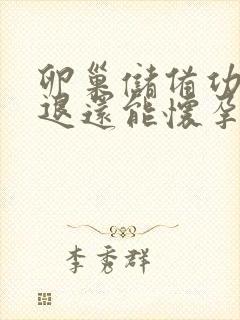 卵巢儲備功
退還能懷孕
李秀群